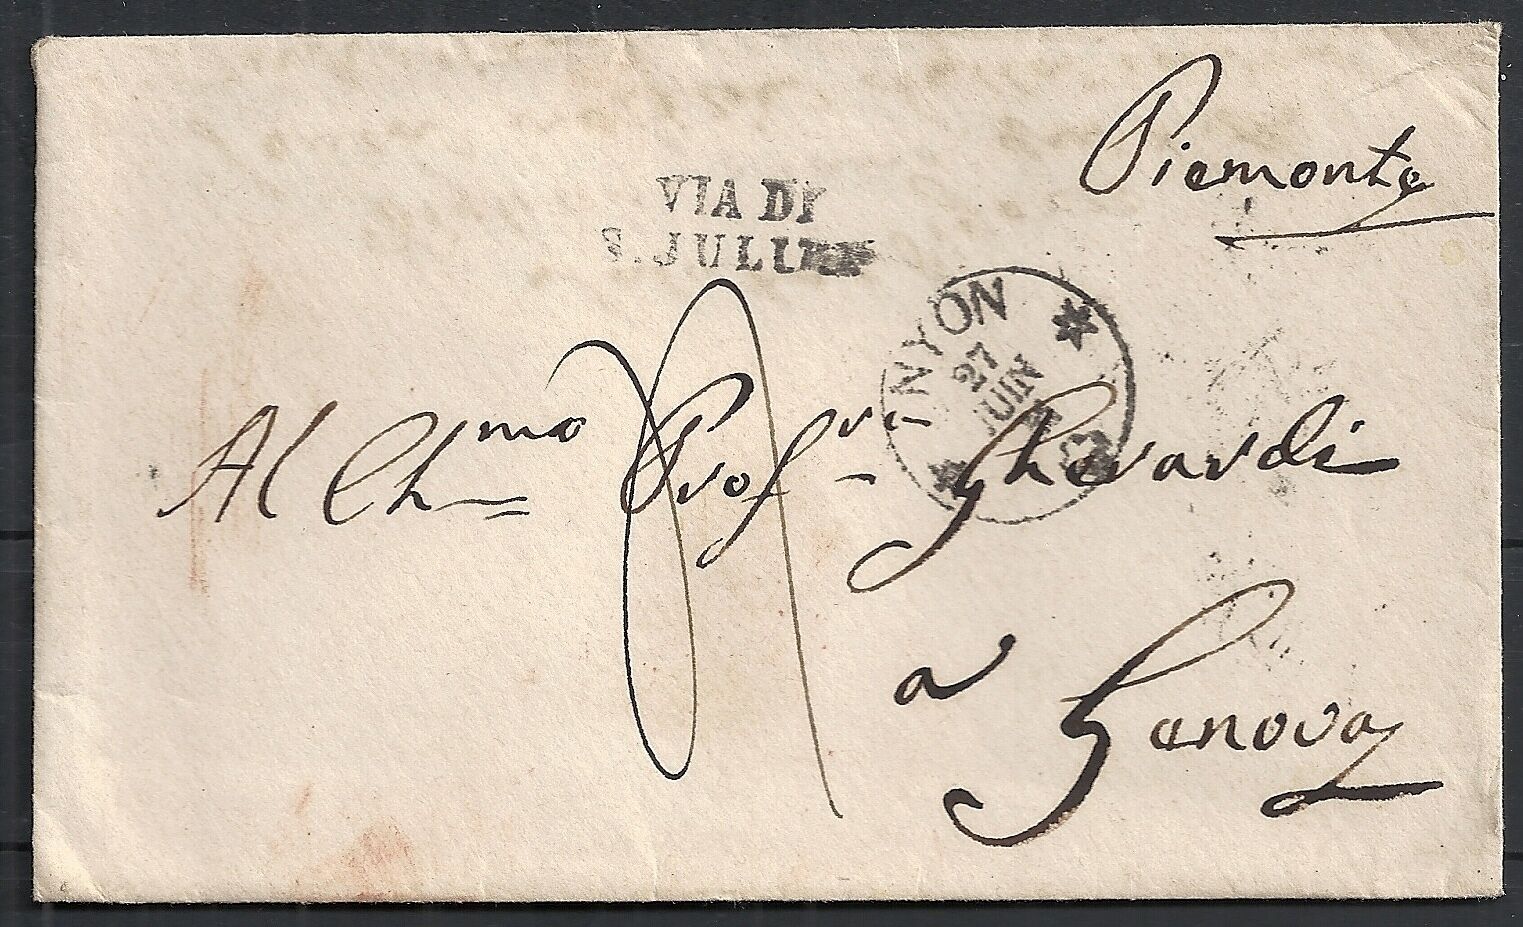 Piemonte
VIA DI
S. JULIEN
NYON
27
JUIN
Al Ch.mo Prof.re Gherardi
a
Genova